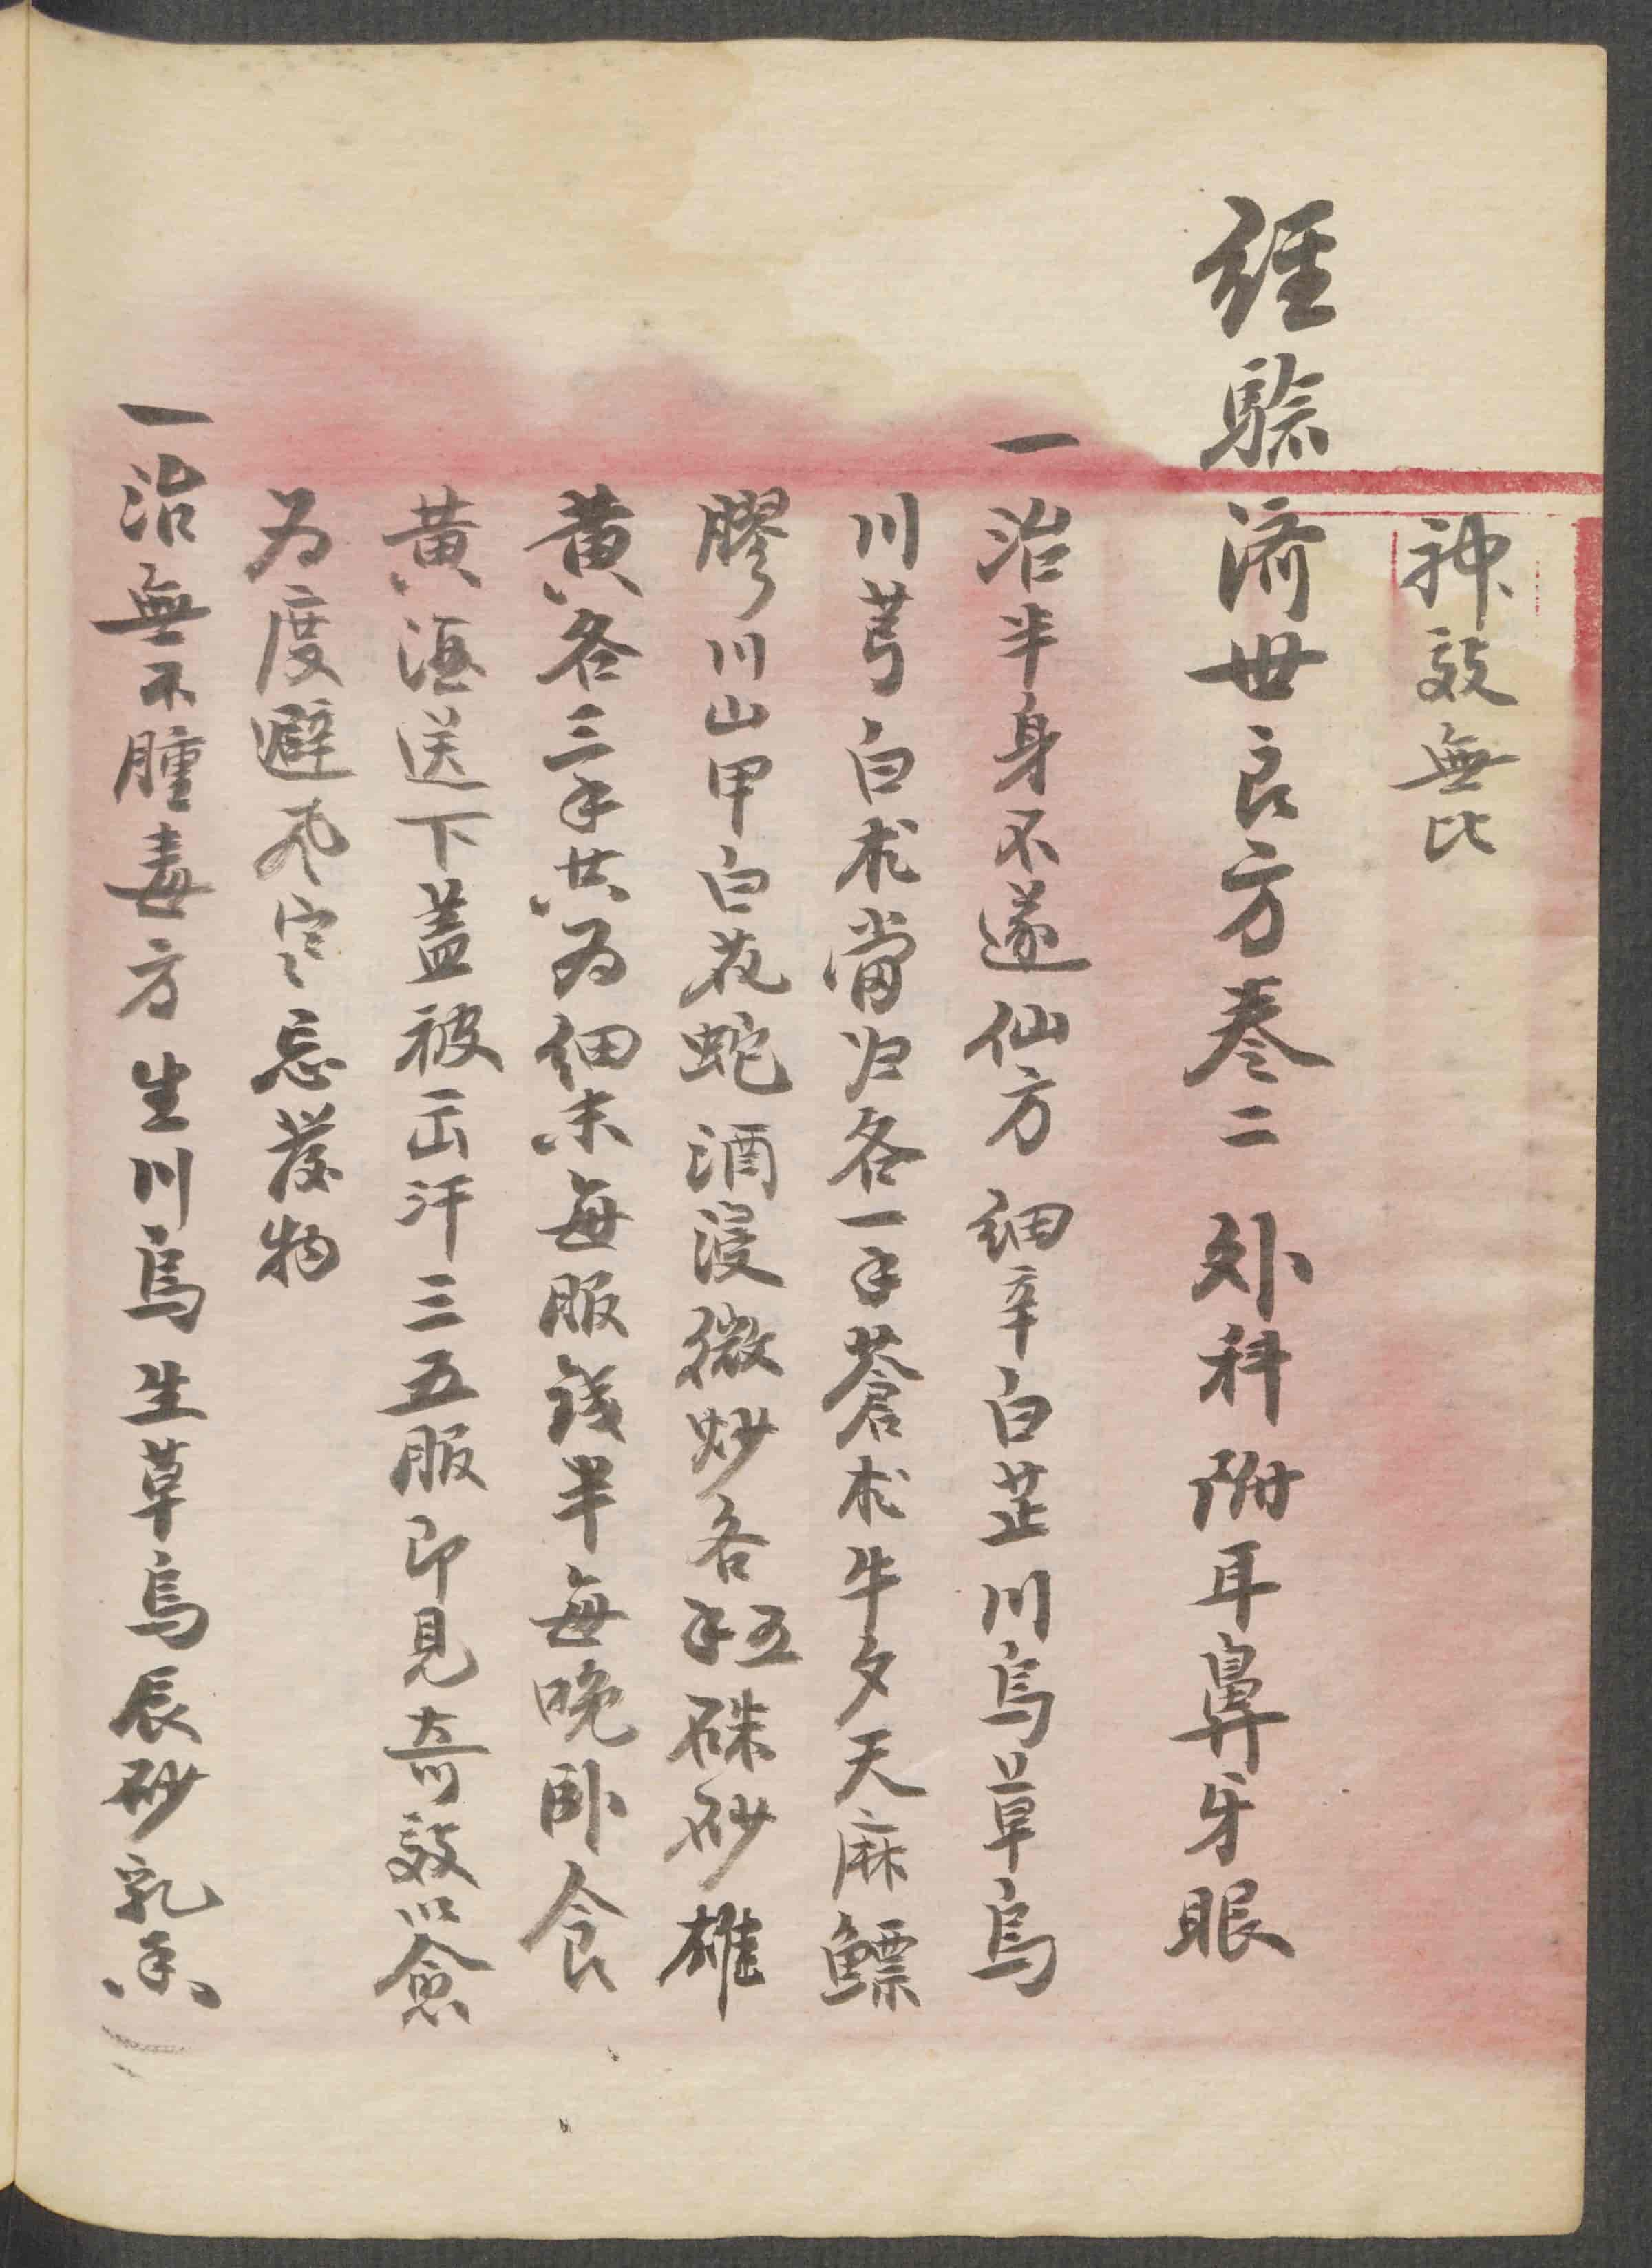 神效無比
經騐济世良方叁二 外科 附耳鼻牙眼
一治半身不遂仙方 细辛白芷川烏草烏
川芎白朮當归各一手蒼朮牛夕天麻鳔
膠川山甲白花蛇酒浸微炒各手五硃砂雄
黄各三手共为细末每服錢半每晚卧食
黄酒送下盖被出汗三五服即见奇效以愈
为度避风寒忌發物
一治無不腫毒方 生川烏生草烏辰砂乳香